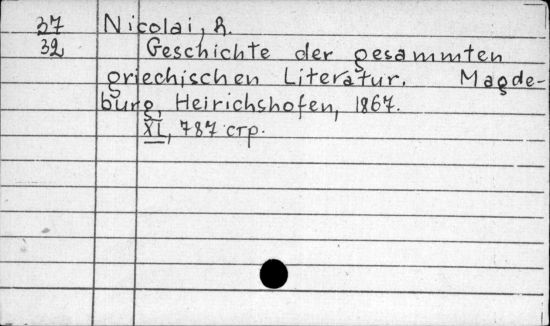 37 Nicolai, R.
32 Geschichte der gesammten
griechischen Literatur. Magde-
burg, Heirichshofen, 1867.
XI, 787 стр.